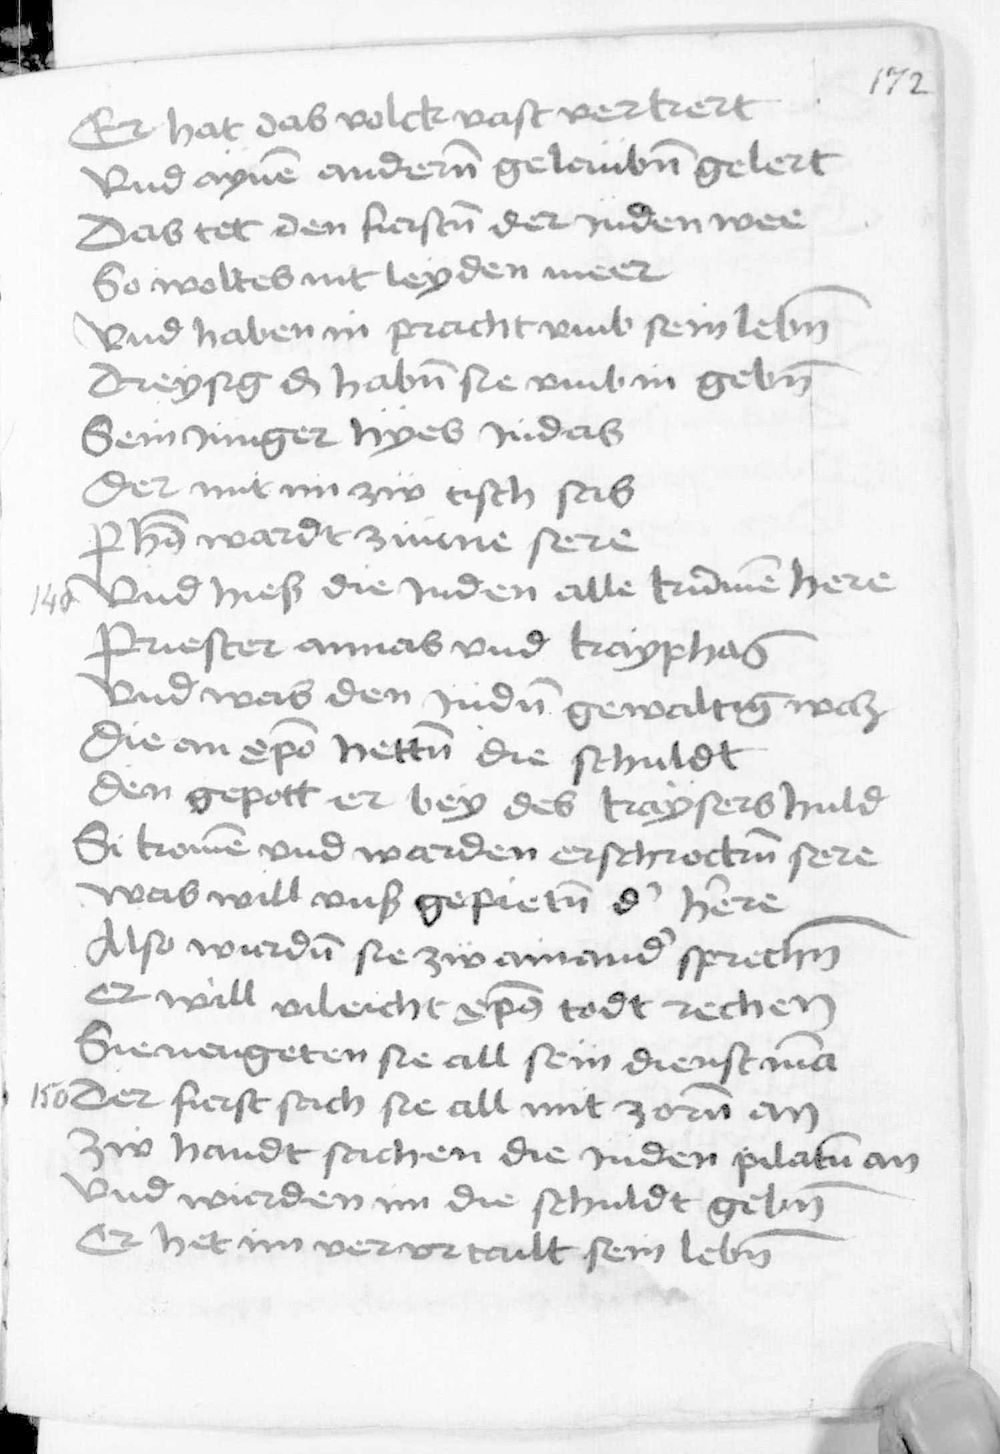 172
Er hat das volck vast verkert
Vnd aynē andern̄ gelaubn̄ gelert
Das tet den furstn̄ der juden wee
So woltes nit leyden meer
Vnd haben in pracht vmb sein lebn̄
Dreysig ₰ habn̄ sie vmb in gebn̄
Sein junger hyes judas
Der mit im zw tisch sas
wardt zurne sere
148 Vnd hieß die juden alle kumē here
Priester annas vnd kayphas
Vnd was den judn̄ gewaltig waz
Die an xp̄o hettn̄ die schuldt
Den gepott er bey des kaysers huld
Si komē vnd warden erschrockn̄ sere
Was will vnß gepietn̄ d' here
Also wurdn̄ sie zw ainand' sprechn̄
Er will vileicht xp̄s todt rechen
Sie naygeten sie all sein dienst mā
150 Der furst sach sie all mit zorn̄ an
Zw handt sachen die juden pilatū an
Vnd wurden im die schuldt gebn̄
Er het im verurtailt sein lebn̄